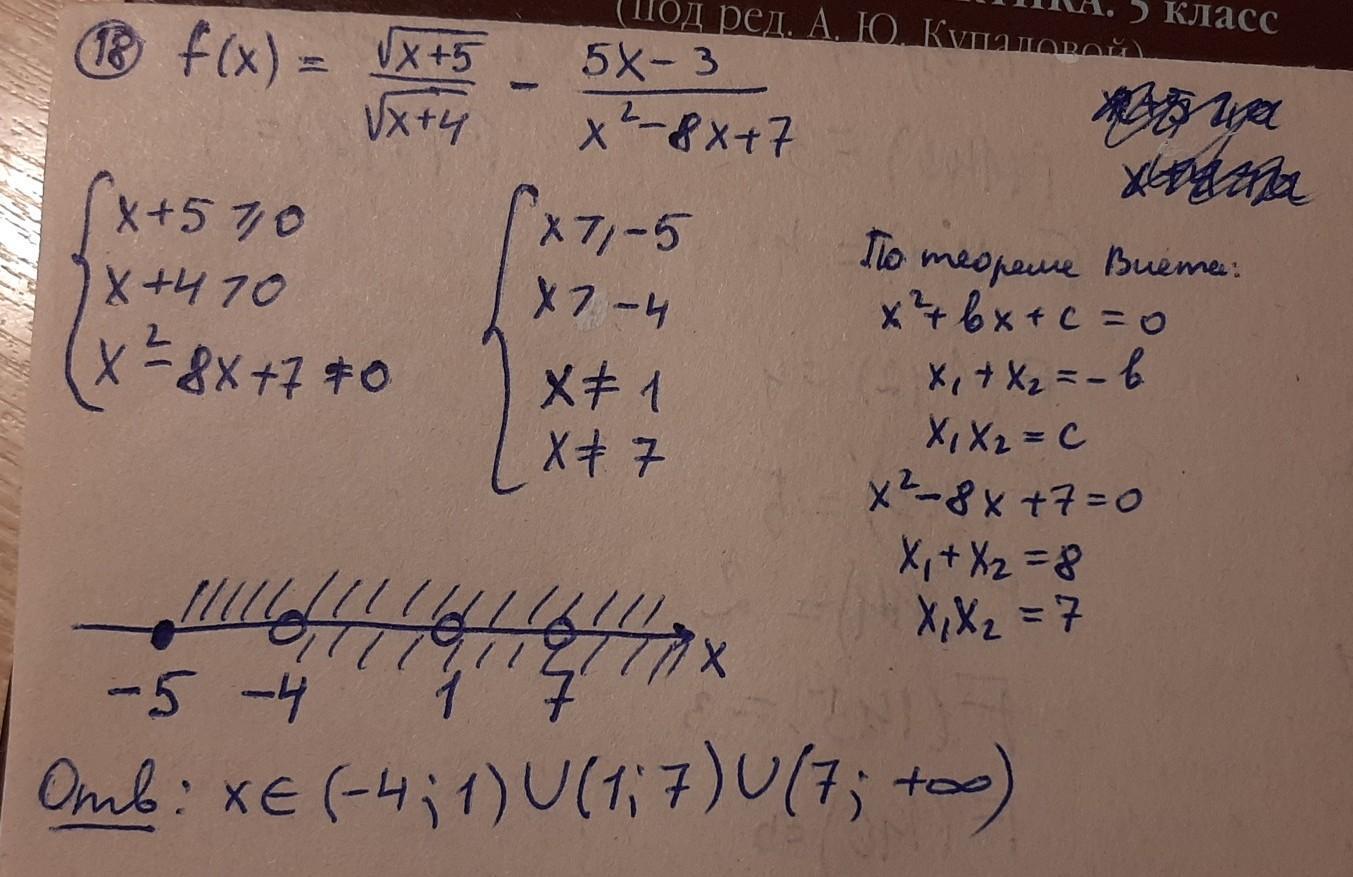 ТИКА. 5 класс
(под ред. А. Ю. Купаловой)
18 f(x) = √x+5 / √x+4 − 5x−3 / x²−8x+7
{ x+5 ⩾ 0
x+4 > 0
x²−8x+7 ≠ 0
{ x ⩾ −5
x > −4
x ≠ 1
x ≠ 7
По теореме Виета:
x²+bx+c=0
x₁+x₂=−b
x₁x₂=c
x²−8x+7=0
x₁+x₂=8
x₁x₂=7
−5 −4 1 7 x
Отв: x∈(−4;1)∪(1;7)∪(7;+∞)